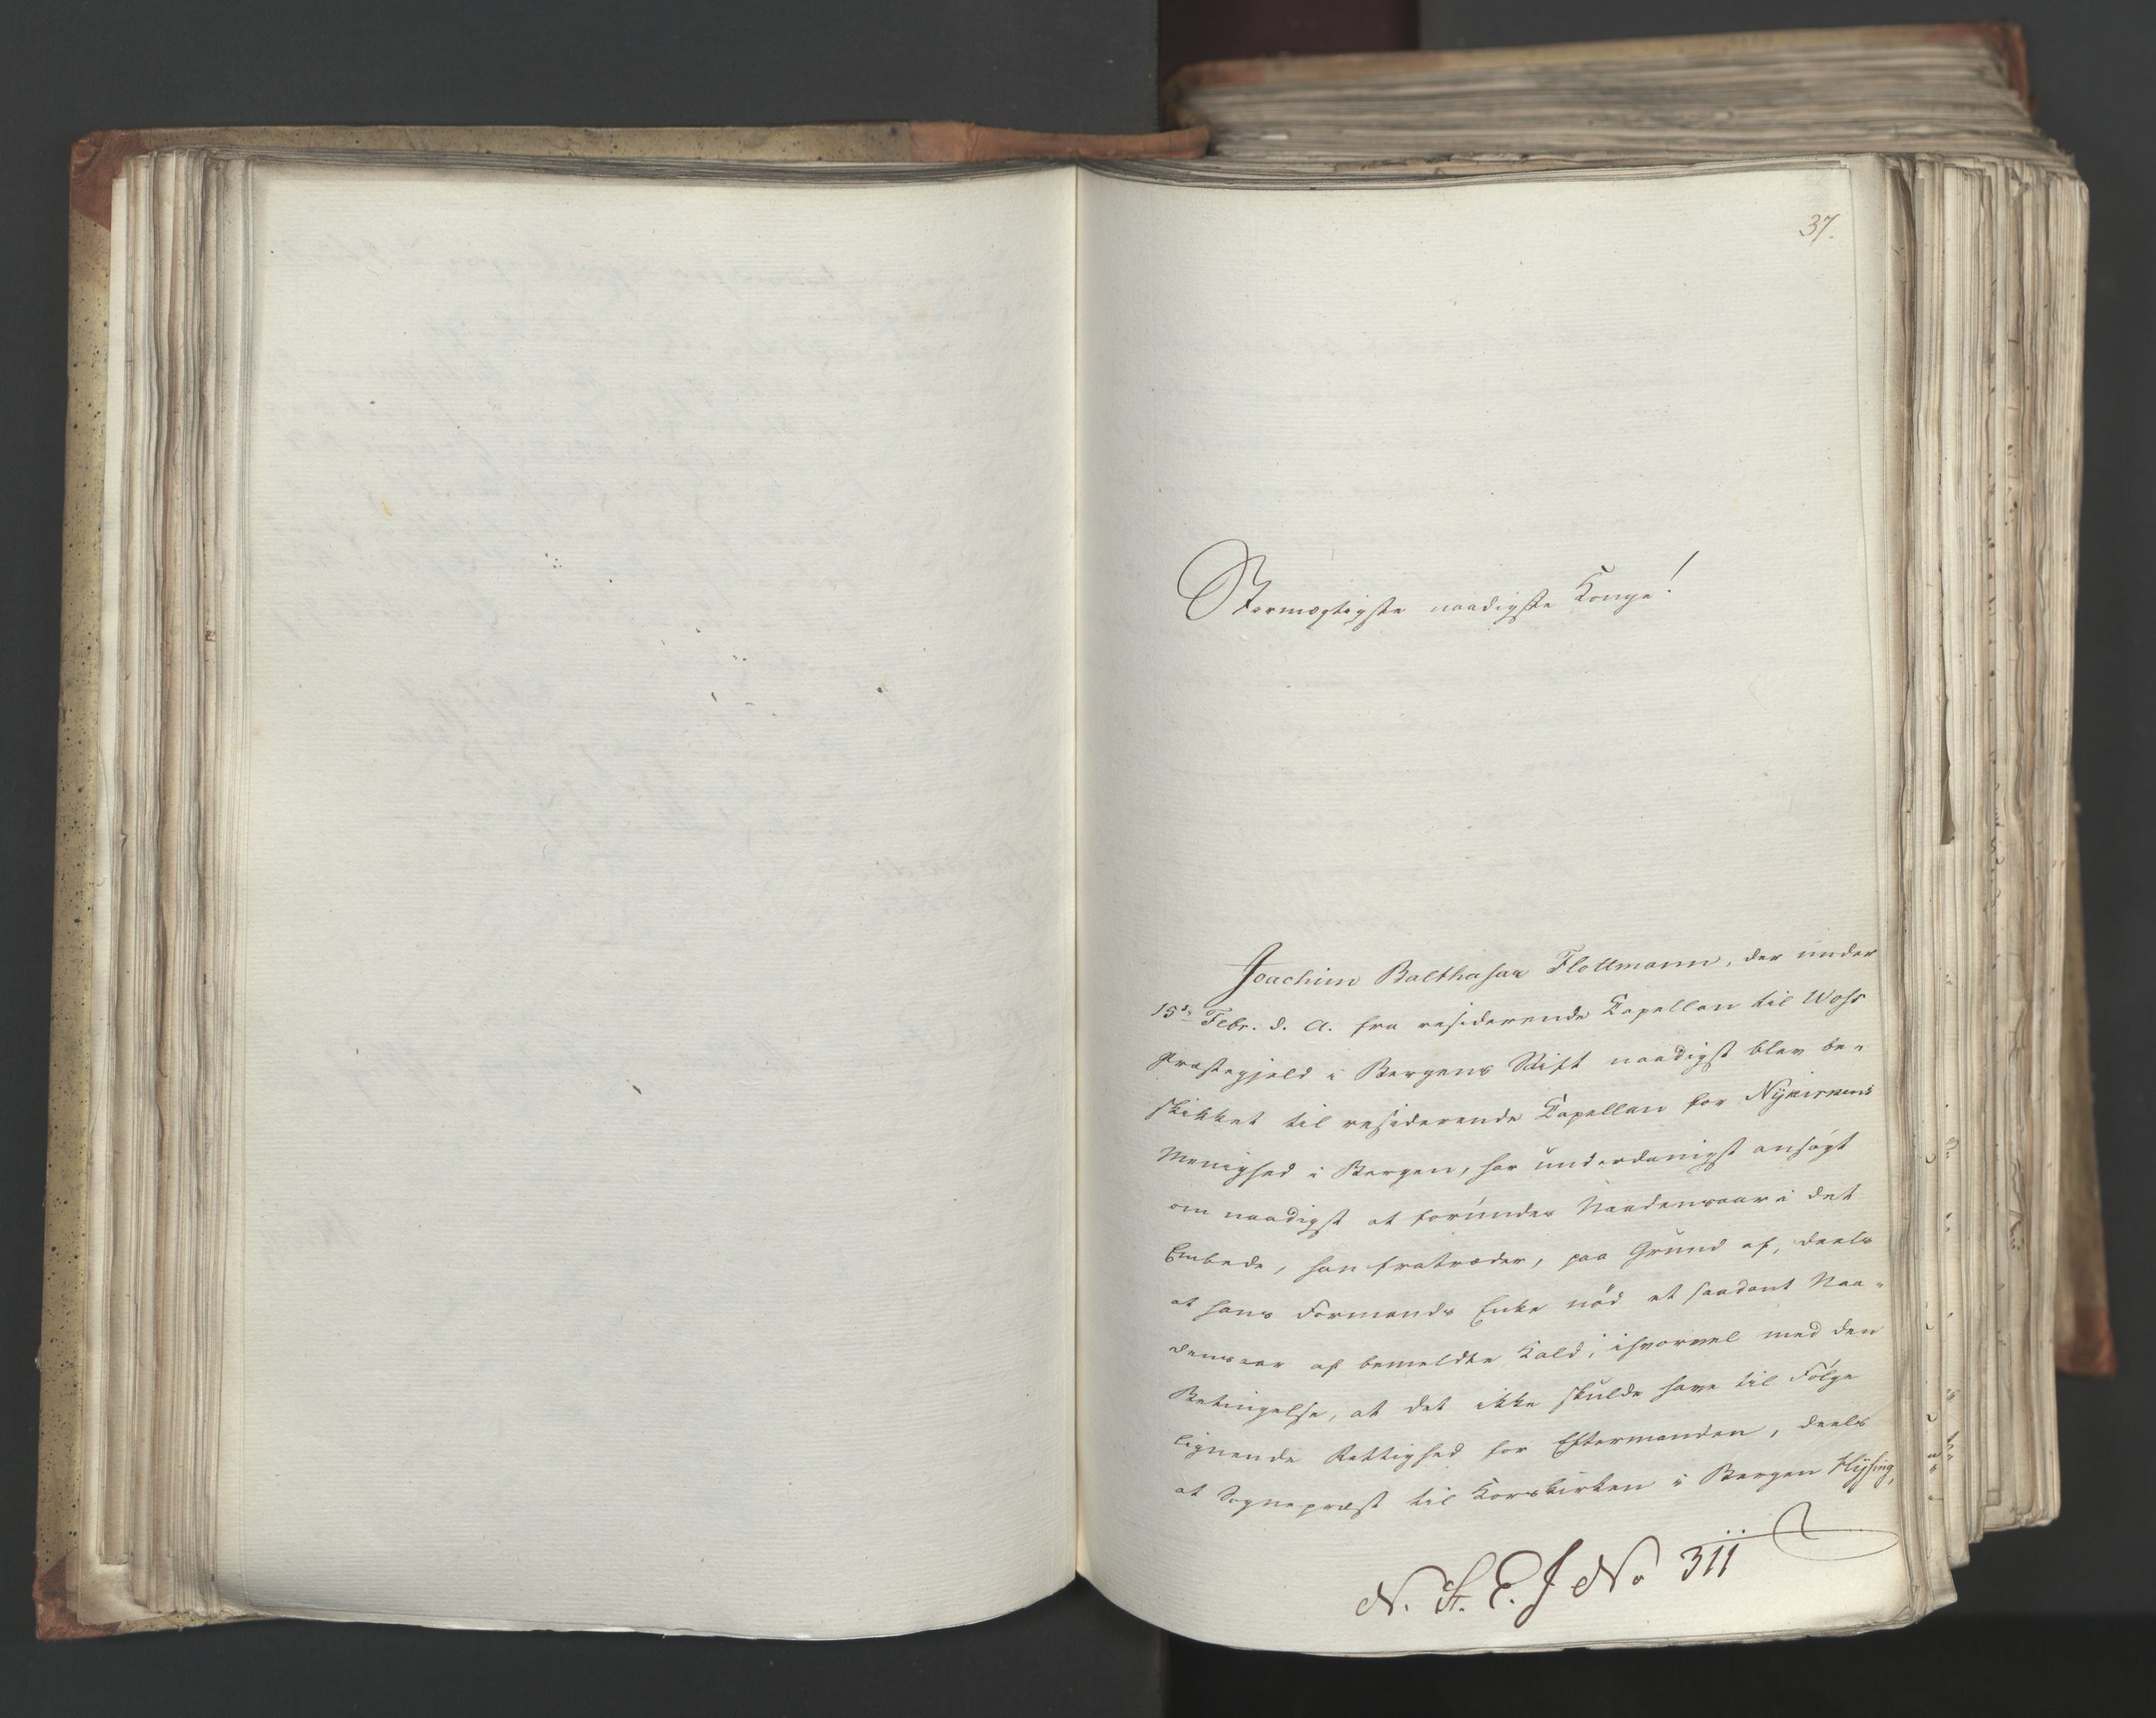 37.
Stormægtigste naadigste Konge!
Joachim Balthasar Flottmann, der under
15de Febr. d. A. fra residerende Capellan til Woss
Præstegjeld i Bergens Stift naadigst blev be-
skikket til residerende Capellan for Nykirkens
Menighed i Bergen, har underdanigst ansögt
om naadigst at forundes Naadensaar i det
Embede, han fratræder, paa Grund af, deels
at hans Formands Enke nöd et saadant Naa-
densaar af bemeldte Kald, ihvorvel med den
Betingelse, at det ikke skulde have til Fölge
lignende Rettighed for Eftermanden, deels
at Sognepræst til Korskirken i Bergen Hysing,
N. St. E. J No 311